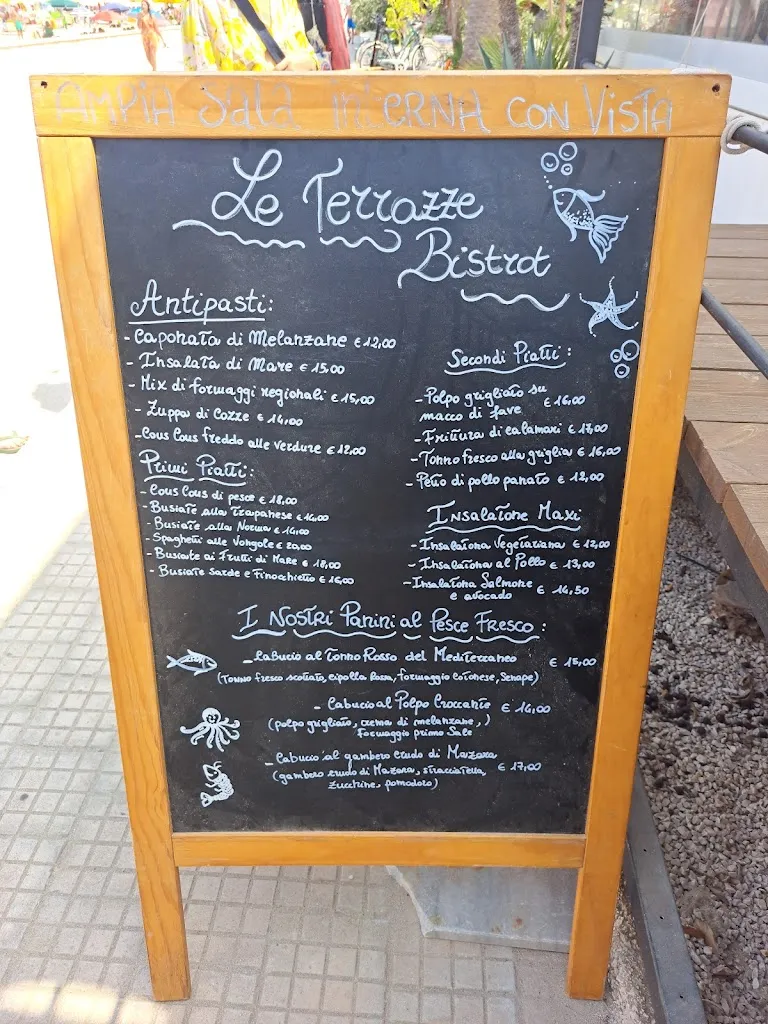 AMPIA SALA INTERNA CON VISTA
Le Terrazze
Bistrot
Antipasti:
- Caponata di Melanzane € 12,00
- Insalata di Mare € 15,00
- Mix di formaggi regionali € 15,00
- Zuppa di Cozze € 14,00
- Cous Cous freddo alle verdure € 12,00
Primi Piatti:
- Cous Cous di pesce € 18,00
- Busiate alla Trapanese € 14,00
- Busiate alla Norma € 14,00
- Spaghetti alle Vongole € 20,00
- Busiate ai Frutti di Mare € 18,00
- Busiate Sarde e Finocchietto € 16,00
Secondi Piatti:
- Polpo grigliato su
macco di fave € 16,00
- Frittura di calamari € 17,00
- Tonno fresco alla griglia € 16,00
- Petto di pollo panato € 12,00
Insalatone Maxi
- Insalatona Vegetariana € 12,00
- Insalatona al Pollo € 13,00
- Insalatona Salmone
e avocado € 14,50
I Nostri Panini al Pesce Fresco:
- Cabucio al Tonno Rosso del Mediterraneo € 15,00
(Tonno fresco scottato, cipolla rossa, formaggio cotonese, Senape)
- Cabucio al Polpo Croccante € 14,00
(polpo grigliato, crema di melanzane,)
formaggio primo Sale
- Cabucio al gambero crudo di Mazara
(gambero crudo di Mazara, stracciatella, € 17,00
zucchine, pomodoro)